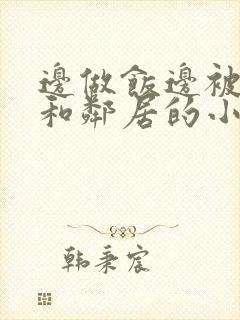 邊做飯邊被
和鄰居的小
韩秉宸